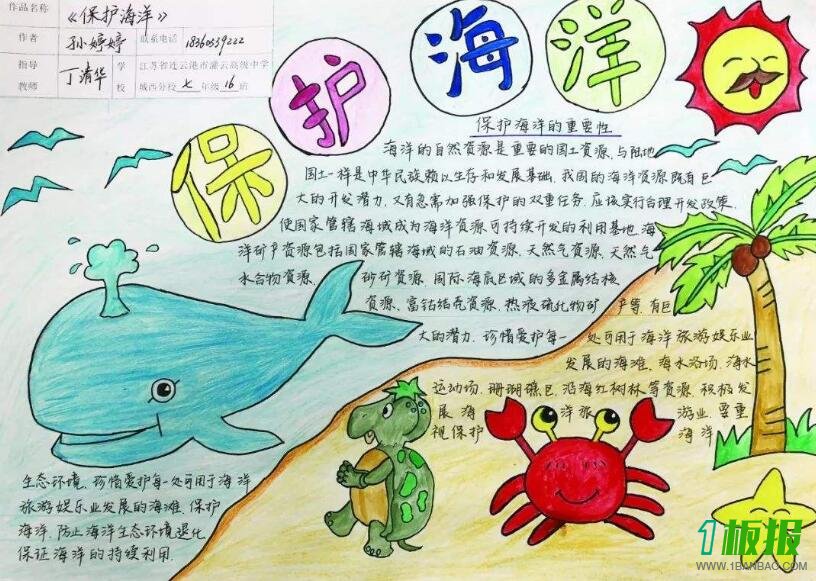 作品名称 《保护海洋》
作者 孙婷婷 联系电话 18360539222
指导教师 丁清华 学校 江苏省连云港市灌云高级中学
城西分校 七 年级 16 班
保护海洋
保护海洋的重要性
海洋的自然资源是重要的国土资源、与陆地
国土一样是中华民族赖以生存和发展基础、我国的海洋资源既有巨
大的开发潜力、又有急需加强保护的双重任务、应该实行合理开发政策、
使国家管辖海域成为海洋资源可持续开发的利用基地、海
洋矿产资源包括国家管辖海域的石油资源、天然气资源、天然气
水合物资源、砂矿资源、国际海底区域的多金属结核
资源、富钴结壳资源、热液硫化物矿产等、有巨
大的潜力、珍惜爱护每一处可用于海洋旅游娱乐业
发展的海滩、海水浴场、海水
运动场、珊瑚礁区、沿海红树林等资源、积极发
展海洋旅游业、要重
视保护海洋
生态环境、珍惜爱护每一处可用于海洋
旅游娱乐业发展的海滩、保护
海洋、防止海洋生态环境退化
保证海洋的持续利用.
1板报
WWW.1BANBAO.COM